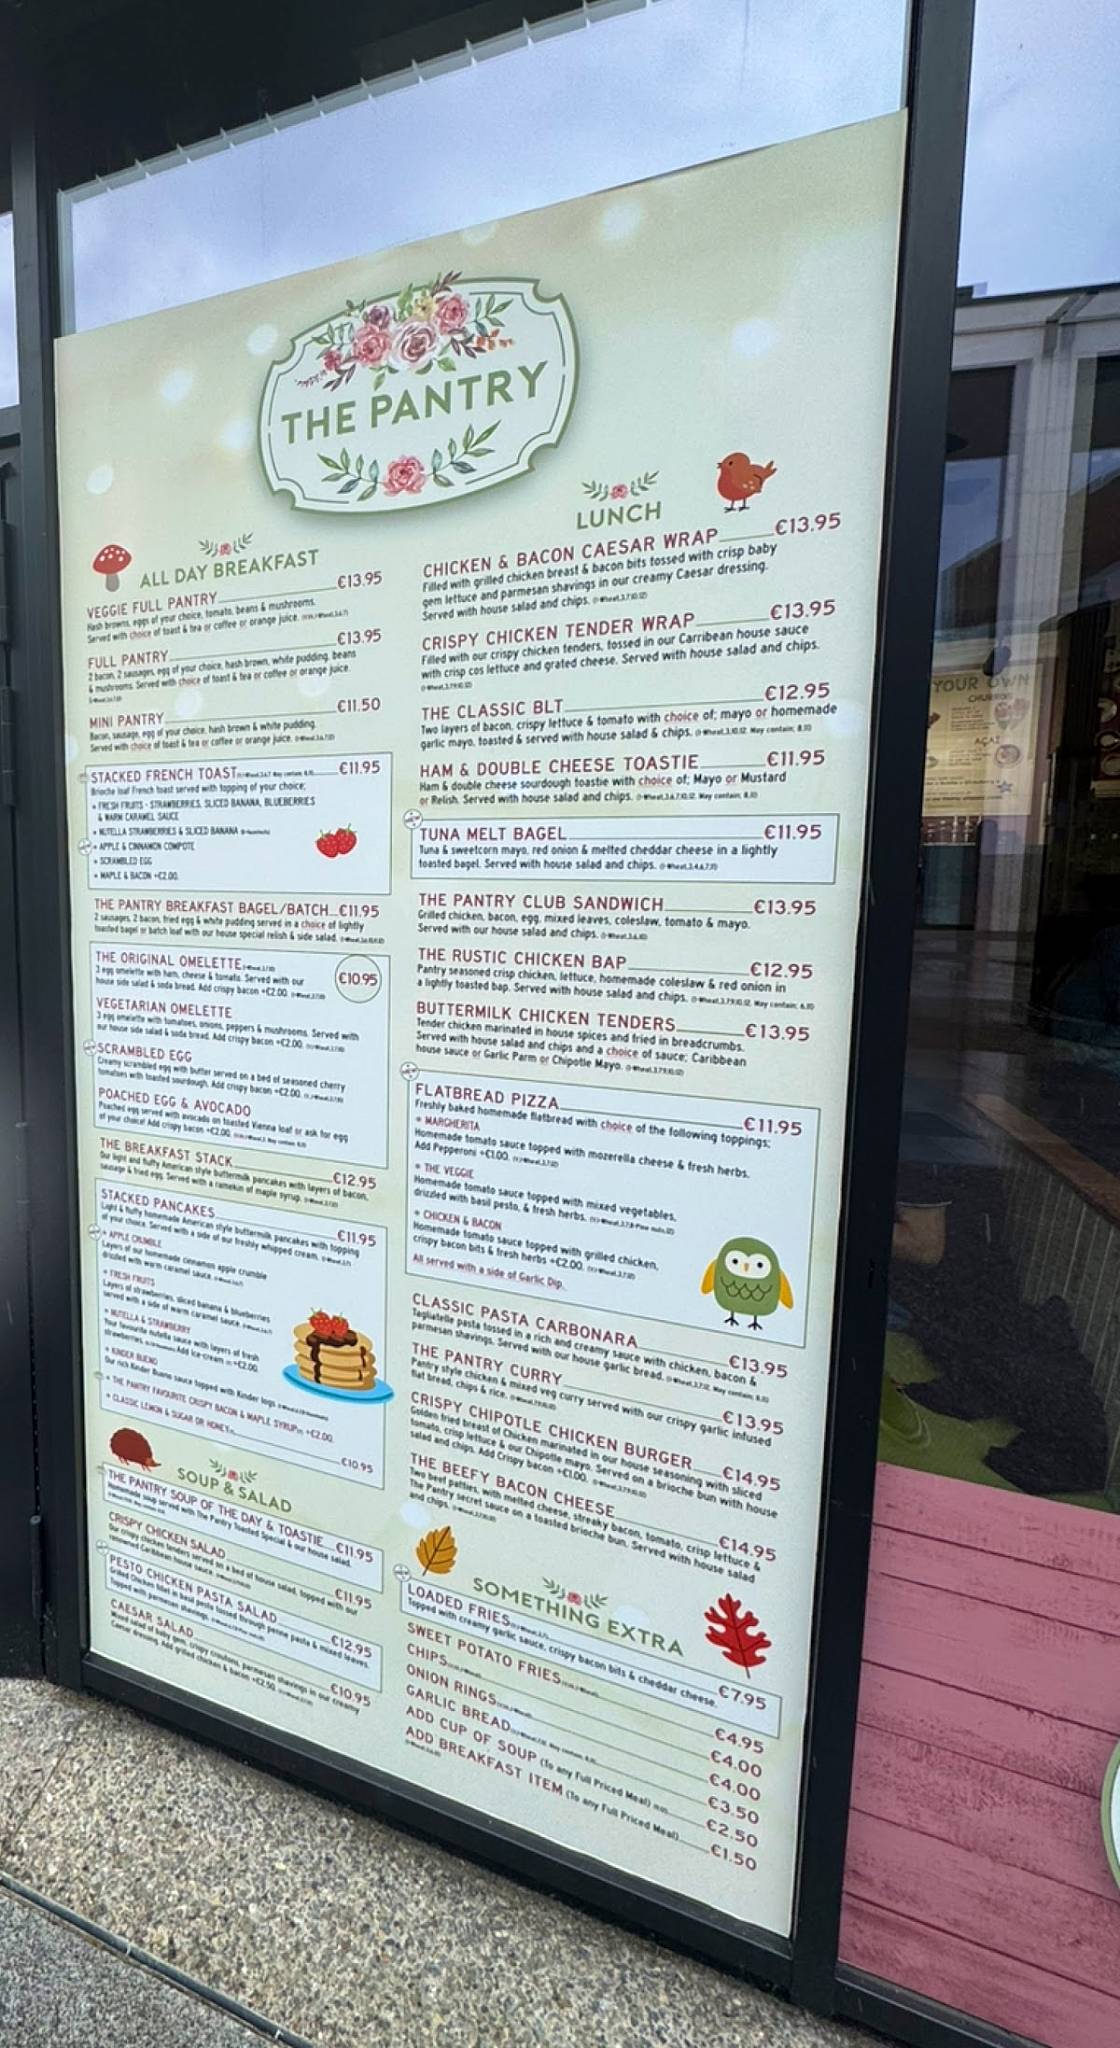 THE PANTRY
ALL DAY BREAKFAST
VEGGIE FULL PANTRY €13.95
Hash browns, eggs of your choice, tomato, beans & mushrooms.
Served with choice of toast & tea or coffee or orange juice.
FULL PANTRY €13.95
2 bacon, 2 sausages, egg of your choice, hash brown, white pudding, beans
& mushrooms. Served with choice of toast & tea or coffee or orange juice.
MINI PANTRY €11.50
Bacon, sausage, egg of your choice, hash brown & white pudding.
Served with choice of toast & tea or coffee or orange juice.
STACKED FRENCH TOAST €11.95
Brioche loaf French toast served with topping of your choice;
• FRESH FRUITS - STRAWBERRIES, SLICED BANANA, BLUEBERRIES
& WARM CARAMEL SAUCE
• NUTELLA STRAWBERRIES & SLICED BANANA
• APPLE & CINNAMON COMPOTE
• SCRAMBLED EGG
• MAPLE & BACON +€2.00
THE PANTRY BREAKFAST BAGEL/BATCH €11.95
2 sausages, 2 bacon, fried egg & white pudding served in a choice of lightly
toasted bagel or batch loaf with our house special relish & side salad.
THE ORIGINAL OMELETTE €10.95
3 egg omelette with ham, cheese & tomato. Served with our
house side salad & soda bread. Add crispy bacon +€2.00.
VEGETARIAN OMELETTE
3 egg omelette with tomatoes, onions, peppers & mushrooms. Served with
our house side salad & soda bread. Add crispy bacon +€2.00.
SCRAMBLED EGG
Creamy scrambled egg with butter served on a bed of seasoned cherry
tomatoes with toasted sourdough. Add crispy bacon +€2.00.
POACHED EGG & AVOCADO
Poached egg served with avocado on toasted Vienna loaf or ask for egg
of your choice! Add crispy bacon +€2.00.
THE BREAKFAST STACK €12.95
Our light and fluffy American style buttermilk pancakes with layers of bacon,
sausage & fried egg. Served with a ramekin of maple syrup.
STACKED PANCAKES €11.95
Light & fluffy homemade American style buttermilk pancakes with topping
of your choice. Served with a side of our freshly whipped cream.
• APPLE CRUMBLE
Layers of our homemade cinnamon apple crumble
drizzled with warm caramel sauce.
• FRESH FRUITS
Layers of strawberries, sliced banana & blueberries
served with a side of warm caramel sauce.
• NUTELLA & STRAWBERRY
Your favourite nutella sauce with layers of fresh
strawberries. Add ice-cream +€2.00
• KINDER BUENO
Our rich Kinder Bueno sauce topped with Kinder logs
• THE PANTRY FAVOURITE CRISPY BACON & MAPLE SYRUP +€2.00
• CLASSIC LEMON & SUGAR OR HONEY €10.95
SOUP & SALAD
THE PANTRY SOUP OF THE DAY & TOASTIE €11.95
Homemade soup served with The Pantry Toasted Special & our house salad.
CRISPY CHICKEN SALAD €11.95
Our crispy chicken tenders served on a bed of house salad, topped with our
renowned Caribbean house sauce.
PESTO CHICKEN PASTA SALAD €12.95
Grilled Chicken fillet in basil pesto tossed through penne pasta & mixed leaves.
Topped with parmesan shavings.
CAESAR SALAD €10.95
Mixed salad of baby gem, crispy croutons, parmesan shavings in our creamy
Caesar dressing. Add grilled chicken & bacon +€2.50.
LUNCH
CHICKEN & BACON CAESAR WRAP €13.95
Filled with grilled chicken breast & bacon bits tossed with crisp baby
gem lettuce and parmesan shavings in our creamy Caesar dressing.
Served with house salad and chips.
CRISPY CHICKEN TENDER WRAP €13.95
Filled with our crispy chicken tenders, tossed in our Carribean house sauce
with crisp cos lettuce and grated cheese. Served with house salad and chips.
THE CLASSIC BLT €12.95
Two layers of bacon, crispy lettuce & tomato with choice of; mayo or homemade
garlic mayo, toasted & served with house salad & chips.
HAM & DOUBLE CHEESE TOASTIE €11.95
Ham & double cheese sourdough toastie with choice of; Mayo or Mustard
or Relish. Served with house salad and chips.
TUNA MELT BAGEL €11.95
Tuna & sweetcorn mayo, red onion & melted cheddar cheese in a lightly
toasted bagel. Served with house salad and chips.
THE PANTRY CLUB SANDWICH €13.95
Grilled chicken, bacon, egg, mixed leaves, coleslaw, tomato & mayo.
Served with our house salad and chips.
THE RUSTIC CHICKEN BAP €12.95
Pantry seasoned crisp chicken, lettuce, homemade coleslaw & red onion in
a lightly toasted bap. Served with house salad and chips.
BUTTERMILK CHICKEN TENDERS €13.95
Tender chicken marinated in house spices and fried in breadcrumbs.
Served with house salad and chips and a choice of sauce; Caribbean
house sauce or Garlic Parm or Chipotle Mayo.
FLATBREAD PIZZA €11.95
Freshly baked homemade flatbread with choice of the following toppings;
• MARGHERITA
Homemade tomato sauce topped with mozerella cheese & fresh herbs.
Add Pepperoni +€1.00.
• THE VEGGIE
Homemade tomato sauce topped with mixed vegetables,
drizzled with basil pesto, & fresh herbs.
• CHICKEN & BACON
Homemade tomato sauce topped with grilled chicken,
crispy bacon bits & fresh herbs +€2.00.
All served with a side of Garlic Dip.
CLASSIC PASTA CARBONARA €13.95
Tagliatelle pasta tossed in a rich and creamy sauce with chicken, bacon &
parmesan shavings. Served with our house garlic bread.
THE PANTRY CURRY €13.95
Pantry style chicken & mixed veg curry served with our crispy garlic infused
flat bread, chips & rice.
CRISPY CHIPOTLE CHICKEN BURGER €14.95
Golden fried breast of Chicken marinated in our house seasoning with sliced
tomato, crisp lettuce & our Chipotle mayo. Served on a brioche bun with house
salad and chips. Add Crispy bacon +€1.00.
THE BEEFY BACON CHEESE €14.95
Two beef patties, with melted cheese, streaky bacon, tomato, crisp lettuce &
The Pantry secret sauce on a toasted brioche bun. Served with house salad
and chips.
SOMETHING EXTRA
LOADED FRIES €7.95
Topped with creamy garlic sauce, crispy bacon bits & cheddar cheese.
SWEET POTATO FRIES €4.95
CHIPS €4.00
ONION RINGS €4.00
GARLIC BREAD €3.50
ADD CUP OF SOUP (To any Full Priced Meal) €2.50
ADD BREAKFAST ITEM (To any Full Priced Meal) €1.50
YOUR OWN
CHURROS
AÇAI